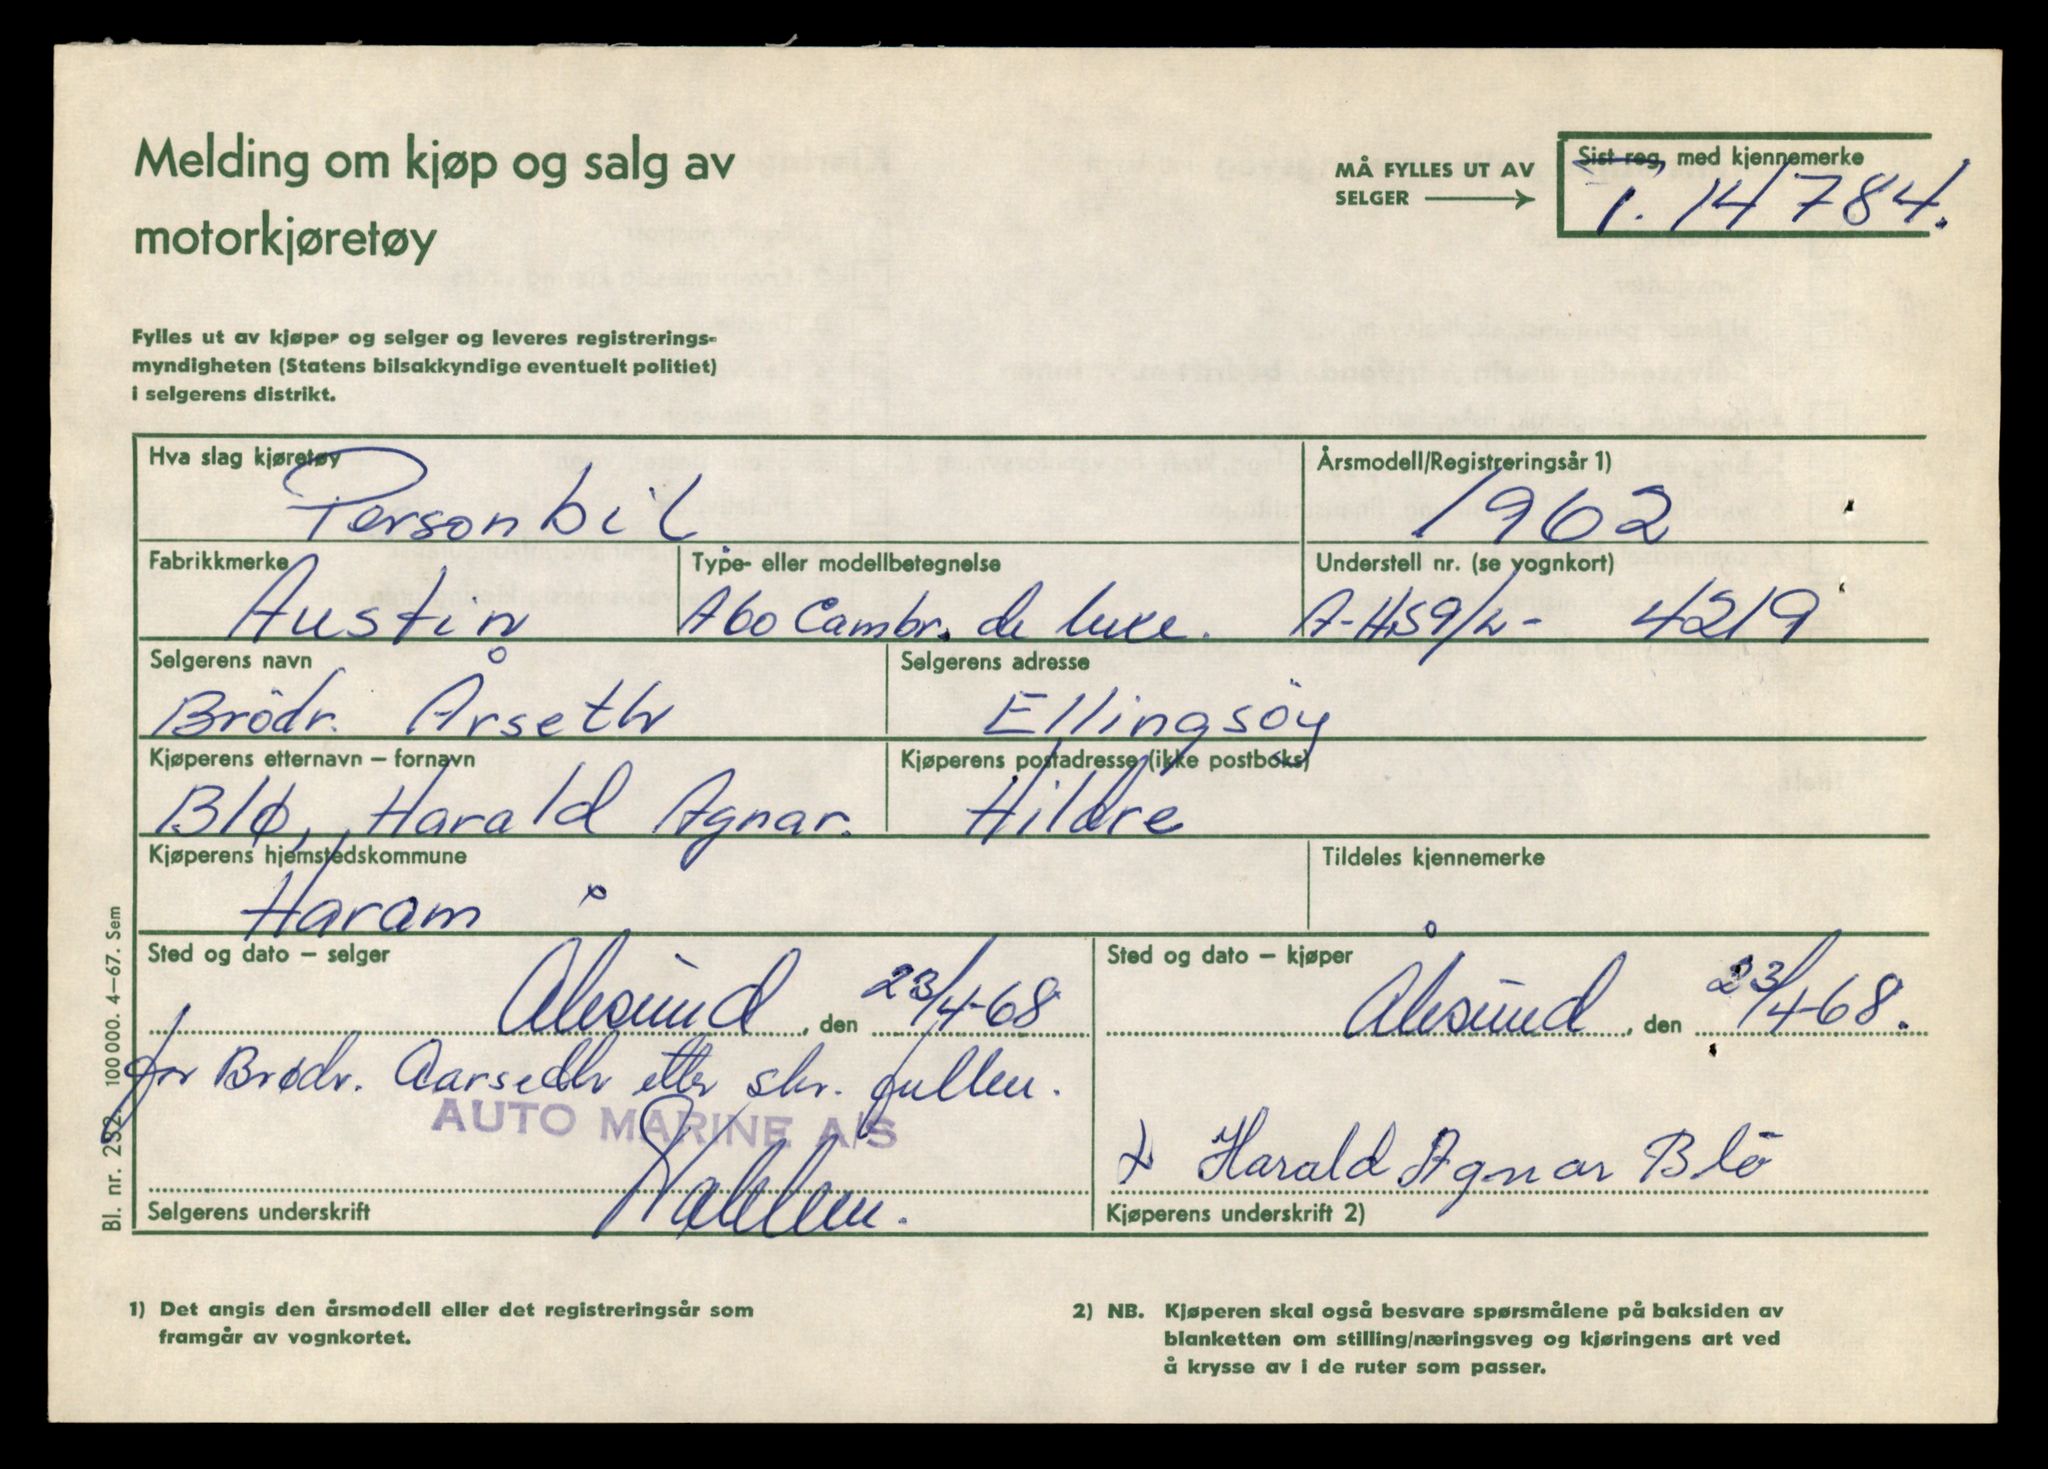 Melding om kjøp og salg av
motorkjøretøy
MÅ FYLLES UT AV
SELGER
Sist reg. med kjennemerke
T. 14784.
Fylles ut av kjøper og selger og leveres registrerings-
myndigheten (Statens bilsakkyndige eventuelt politiet)
i selgerens distrikt.
Hva slag kjøretøy
Personbil
Årsmodell/Registreringsår 1)
1962
Fabrikkmerke
Austin
Type- eller modellbetegnelse
A60 Cambr. de luxe.
Understell nr. (se vognkort)
A-HS9/L- 4219
Selgerens navn
Brödr. Årseth
Selgerens adresse
Ellingsöy
Kjøperens etternavn – fornavn
Blø, Harald Agnar.
Kjøperens postadresse (ikke postboks)
Hildre
Kjøperens hjemstedskommune
Haram
Tildeles kjennemerke
Sted og dato – selger
Ålesund, den 23/4-68
Sted og dato – kjøper
Ålesund, den 23/4-68.
for Brødr. Aarseth etter skr. fullm.
AUTO MARINE A/S
Selgerens underskrift
x Harald Agnar Blö
Kjøperens underskrift 2)
Bl. nr. 232. 100 000. 4–67. Sem
1) Det angis den årsmodell eller det registreringsår som
framgår av vognkortet.
2) NB. Kjøperen skal også besvare spørsmålene på baksiden av
blanketten om stilling/næringsveg og kjøringens art ved
å krysse av i de ruter som passer.